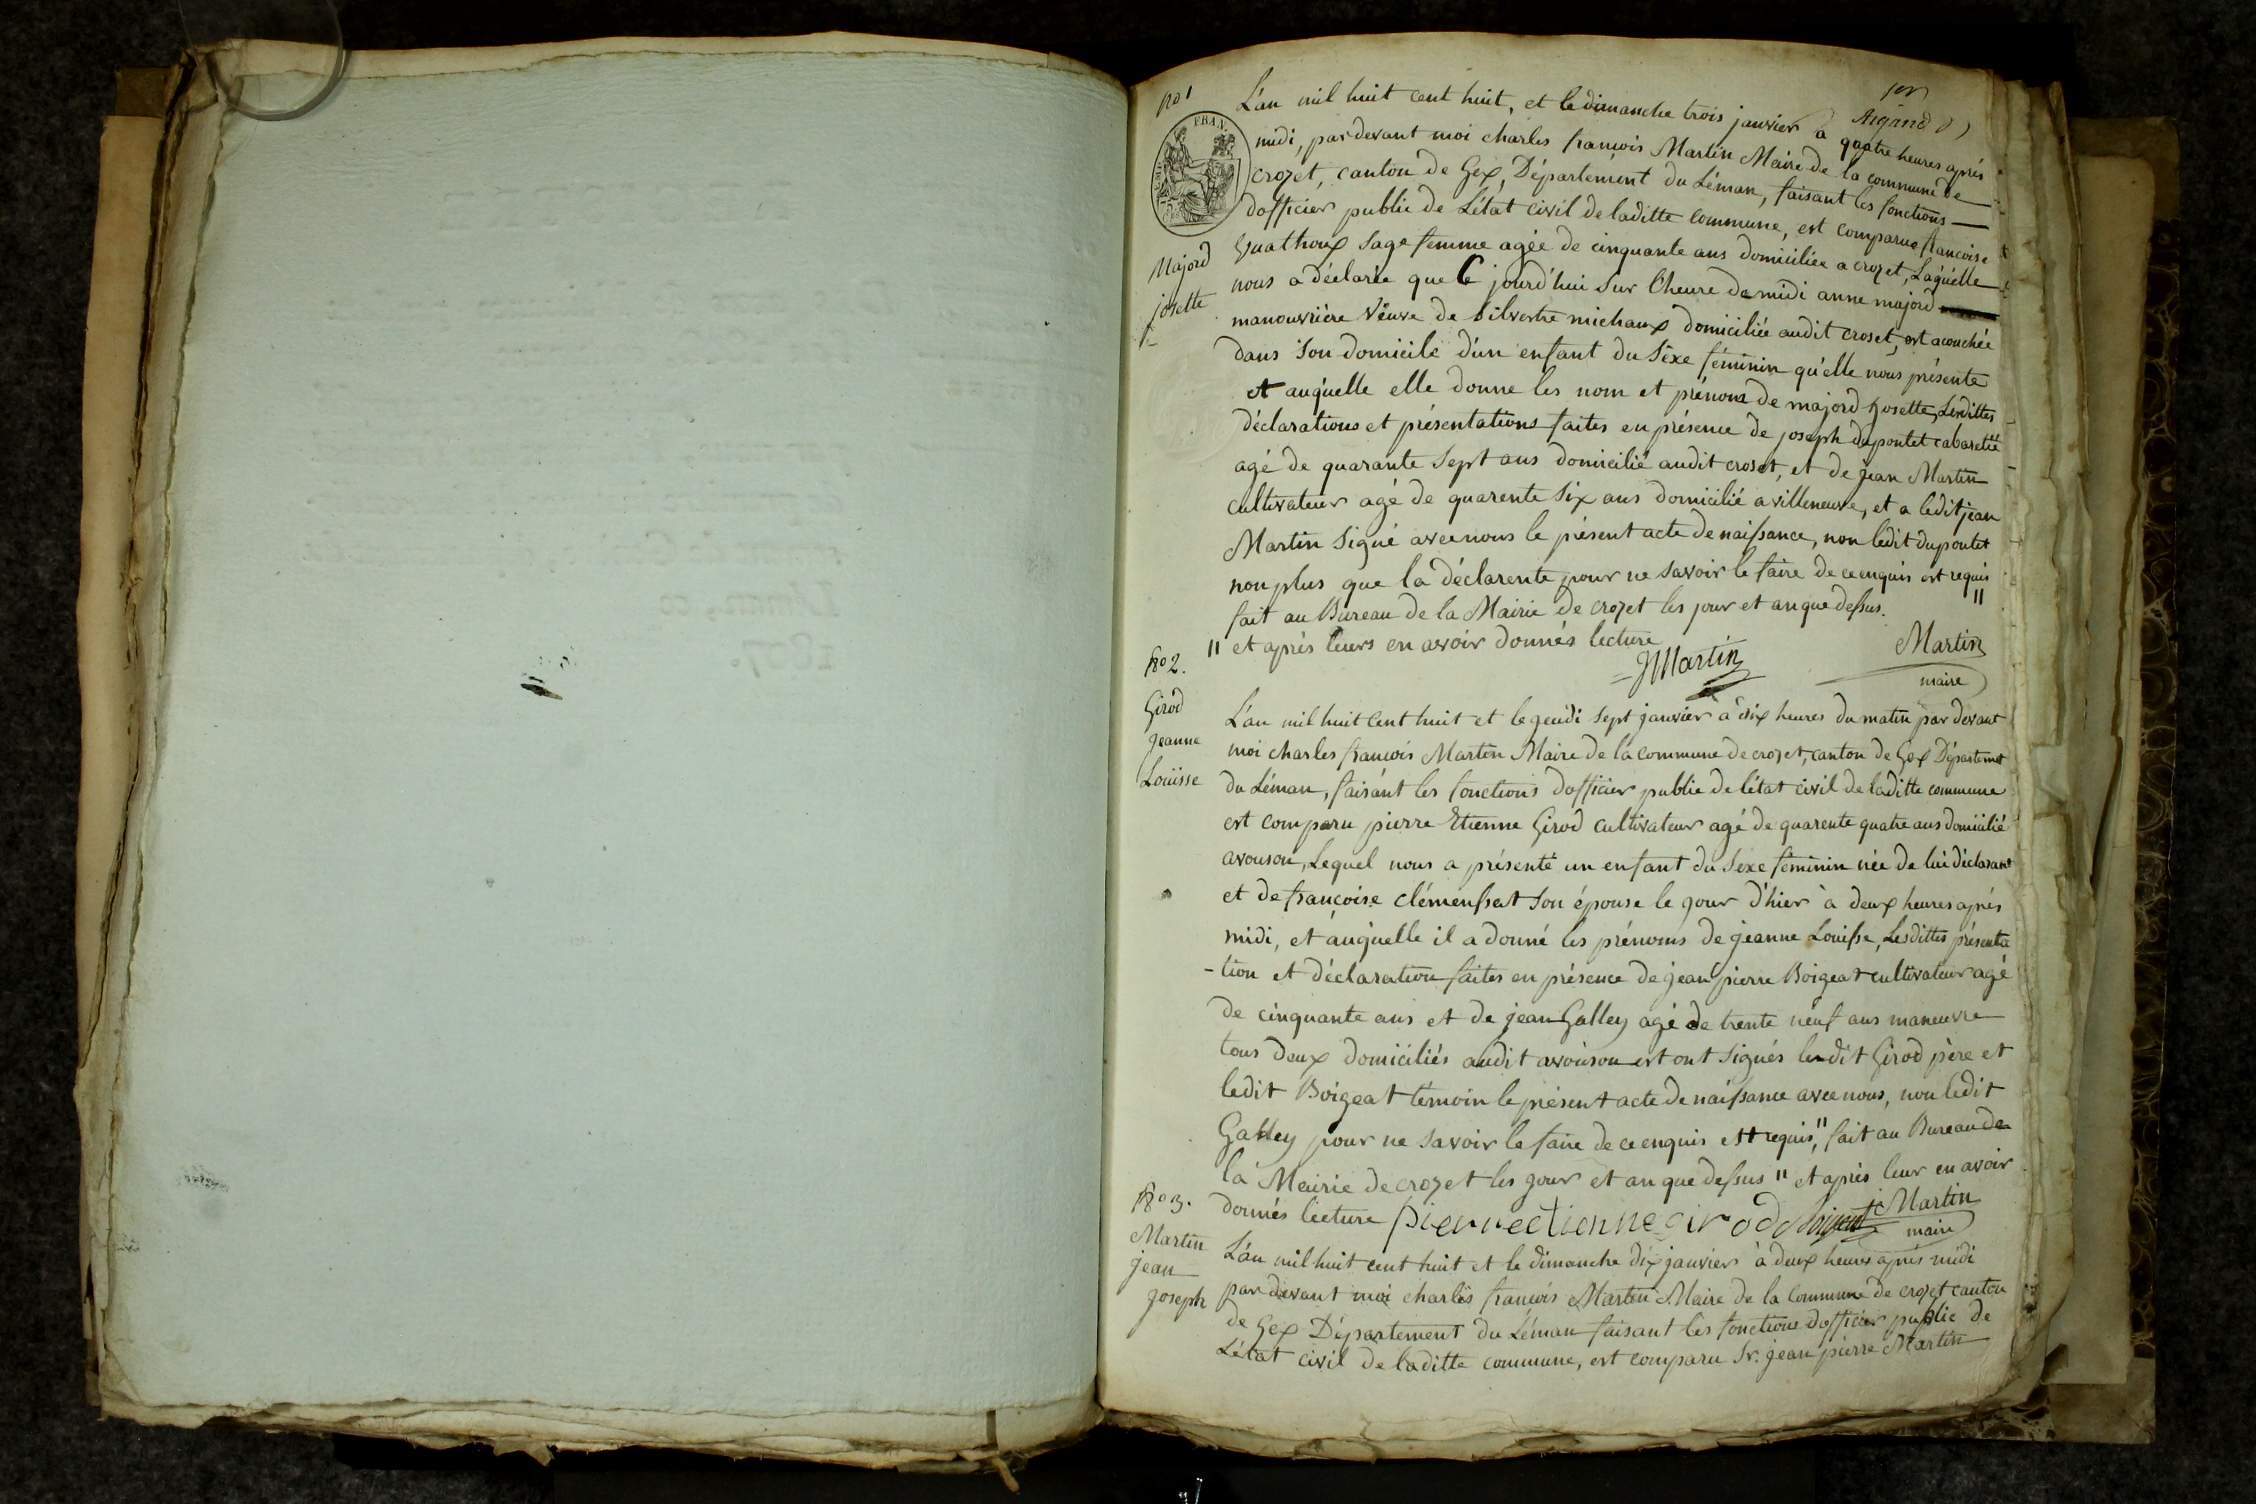 1er
Rigand
no 1
L'an mil huit cent huit, et le dimanche trois janvier à quatre heures après
midi, pardevant moi charles françois Martin Maire de la commune de
crozet, canton de Gex, Département du Léman, faisant les fonctions
FRAN.
dofficier public de L'état civil de laditte commune, est comparue francoise
Majord
josette
Guathoux sage femme agée de cinquante ans domiciliée a crozet, Laquelle
nous a déclarée que Ce jourd'hui sur l'heure de midi anne majord
manouvrière Véuve de silvestre michaux domiciliée audit croset, est acouchée
dans son domicile d'un enfant du séxe féminin qu'elle nous présente
et auquelle elle donne les nom et prénom de majord Josette, Lesdittes
déclarations et présentations faites en présence de joseph dupontet cabaretié
agé de quarante sept ans domicilié audit croset, et de jean Martin
cultivateur agé de quarente six ans domicilié a villeneuve, et a ledit jean
Martin signé avec nous le présent acte de naissance, non ledit dupontet
non plus que la déclarente pour ne savoir le faire de ce enquis est requis "
fait au Bureau de la Mairie de crozet les jour et an que dessus.
" et après leurs en avoir donnés lecture
JMartin
Martin
maire
no 2.
Girod
jeanne
Louisse
L'an mil huit cent huit et le jeudi sept janvier à dix heures du matin par devant
moi charles françois Martin Maire de la commune de crozet, canton de Gex Département
du Léman, faisant les fonctions dofficier public de l'état civil de laditte commune
est comparu pierre Etienne Girod cultivateur agé de quarente quatre ans domicilié
avouson, Lequel nous a présenté un enfant du sexe féminin née de lui déclarant
et de françoise clémensset son épouse le jour d'hier à deux heures après
midi, et auquelle il a donné les prénoms de jeanne Louisse, Lesdittes présenta
-tion et déclaration faites en présence de jean pierre Boigeat cultivateur agé
de cinquante ans et de jean Galley agé de trente neuf ans maneuvre
tous deux domiciliés audit avouson est ont signés ledit Girod père et
ledit Boigeat témoin le présent acte de naissance avec nous, non ledit
Galley pour ne savoir le faire de ce enquis et requis," fait au Bureau de
la Mairie de crozet les jour et an que dessus " et après leur en avoir
donnés lecture pierre etienne girod Boigeat Martin
maire
no 3.
Martin
jean
joseph
L'an mil huit cent huit et le dimanche dix janvier à deux heures après midi
par devant moi charles françois Martin Maire de la Commune de crozet canton
de Gex Département du Léman faisant les fonctions dofficier public de
L'état civil de laditte commune, est comparu Sr. jean pierre Martin